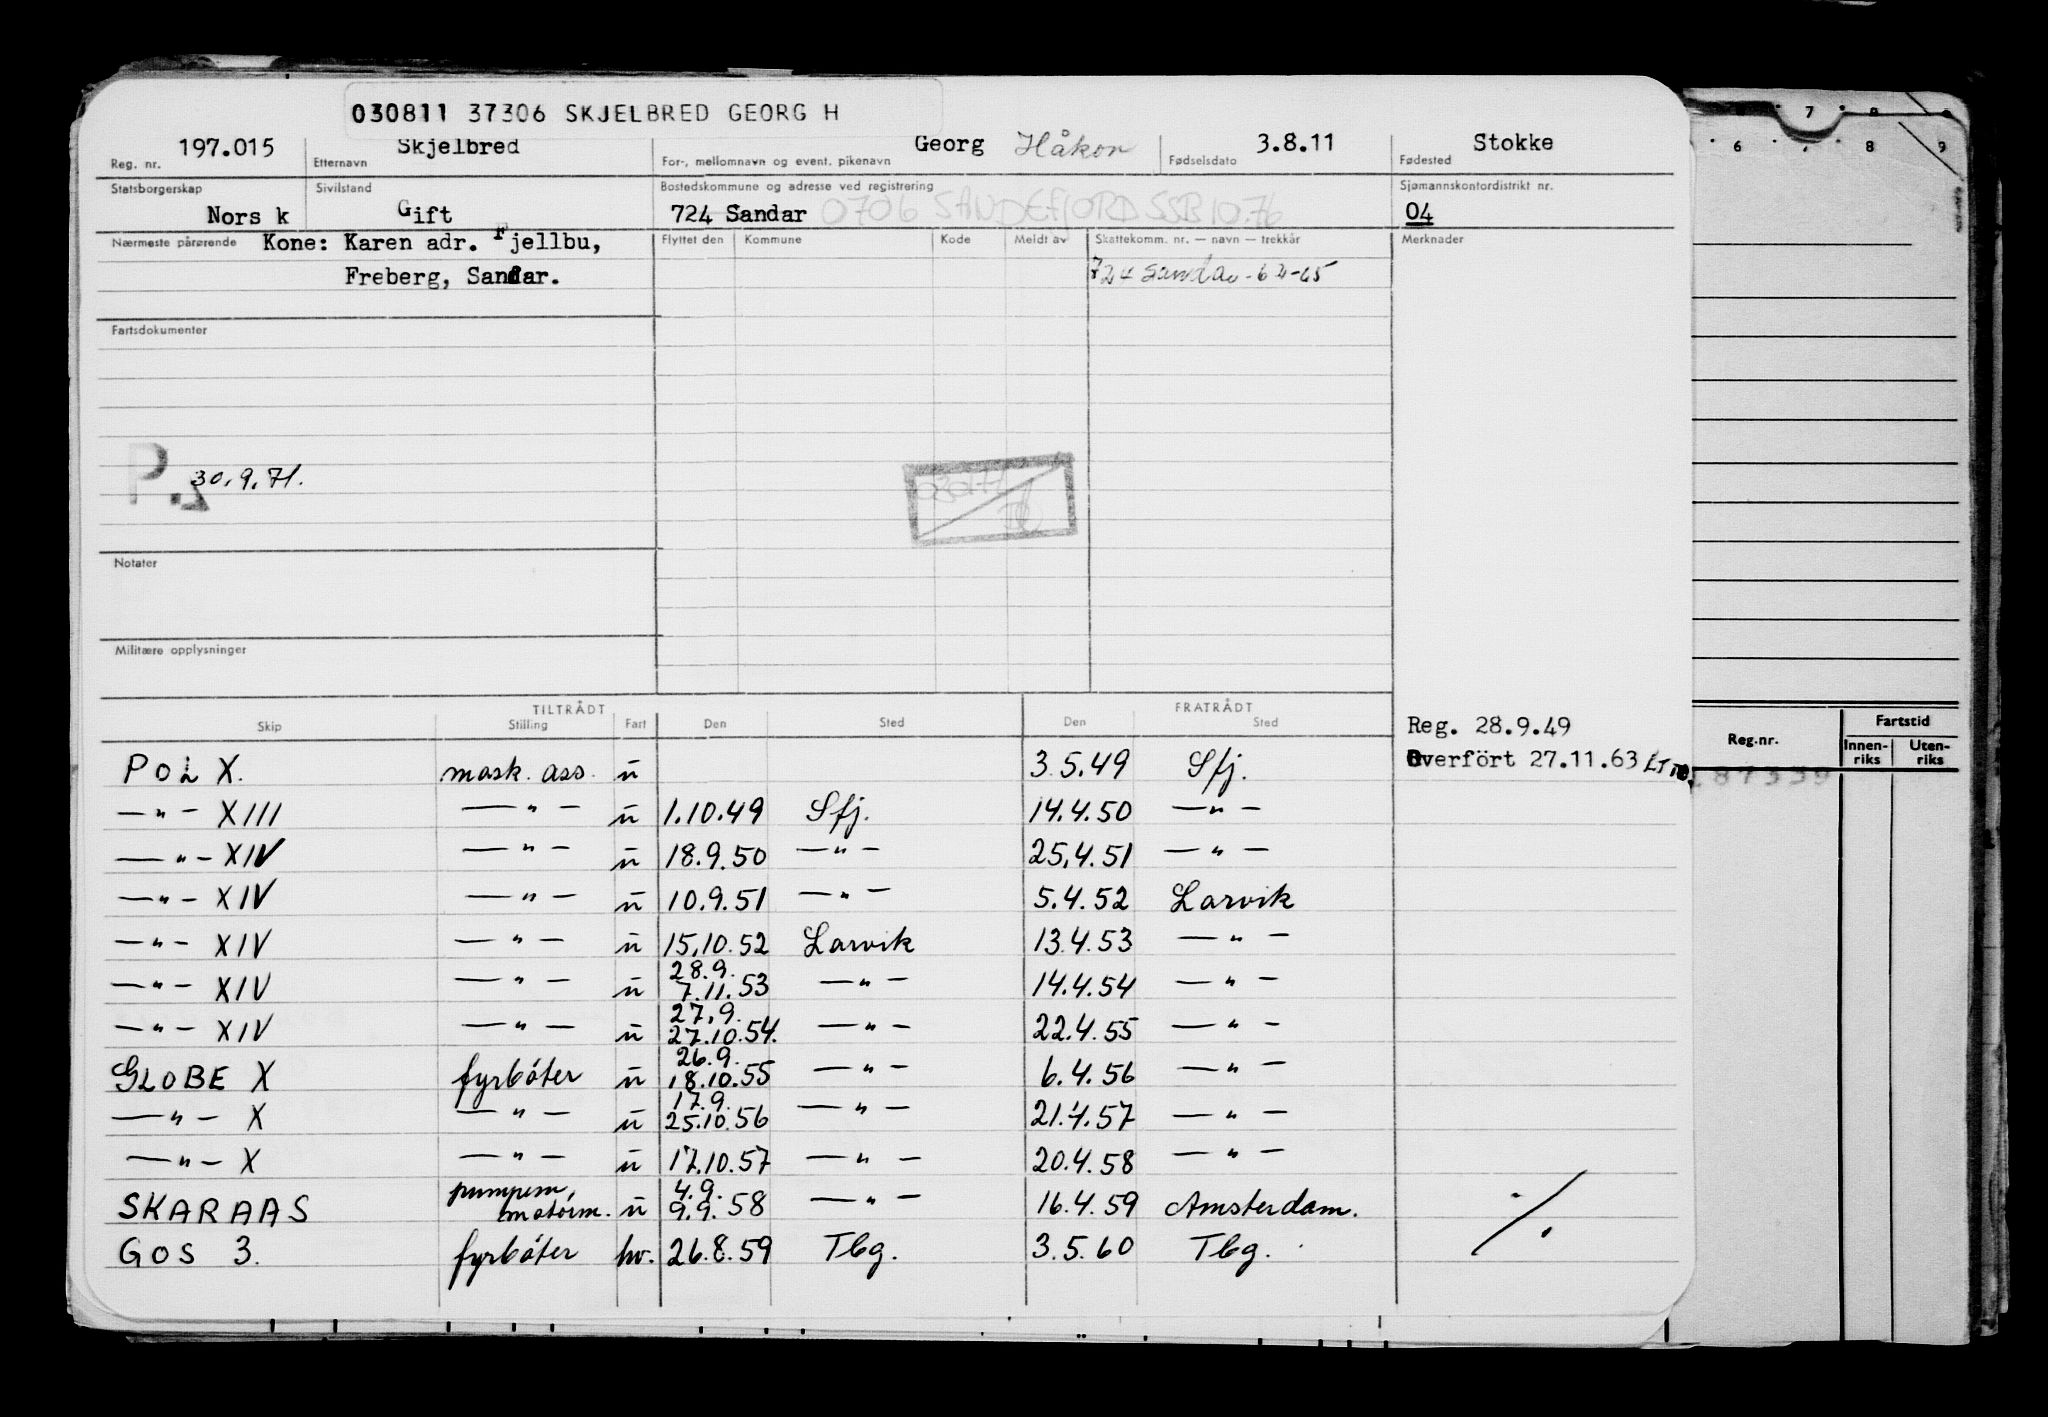 030811 37306 SKJELBRED GEORG H
197.015 Skjelbred Georg Håkon 3.8.11 Stokke
Reg. nr. Etternavn For-, mellomnavn og event. pikenavn Fødselsdato Fødested
Statsborgerskap Sivilstand Bostedskommune og adresse ved registrering Sjømannskontordistrikt nr.
Norsk Gift 724 Sandar 0706 SANDEFJORD SSB 10.76 04
Nærmeste pårørende Kone: Karen adr. Fjellbu,
Freberg, Sandar.
Flyttet den Kommune Kode Meldt av Skattekomm. nr. — navn — trekkår Merknader
724 Sandar - 64-65
Fartsdokumenter
P. 30.9.71.
Notater
Militære opplysninger
TILTRÅDT FRATRÅDT
Skip Stilling Fart Den Sted Den Sted
Reg. 28.9.49
Overført 27.11.63
POL X. mask. ass. u 3.5.49 Sfj.
—"— XIII —"— u 1.10.49 Sfj. 14.4.50 —"—
—"— XIV —"— u 18.9.50 —"— 25.4.51 —"—
—"— XIV —"— u 10.9.51 —"— 5.4.52 Larvik
—"— XIV —"— u 15.10.52 Larvik 13.4.53 —"—
28.9.
—"— XIV —"— u 7.11.53 —"— 14.4.54 —"—
27.9.
—"— XIV —"— u 27.10.54. —"— 22.4.55 —"—
26.9.
GLOBE X fyrbøter u 18.10.55 —"— 6.4.56 —"—
17.9.
—"— X —"— u 25.10.56 —"— 21.4.57 —"—
—"— X —"— u 17.10.57 —"— 20.4.58 —"—
pumpem. 4.9.
SKARAAS motorm. u 9.9.58 —"— 16.4.59 Amsterdam.
GOS 3. fyrbøter hv. 26.8.59 Tbg. 3.5.60 Tbg.
7 8 9
6 7 8 9
Reg.nr. Fartstid
Innen-riks Uten-riks